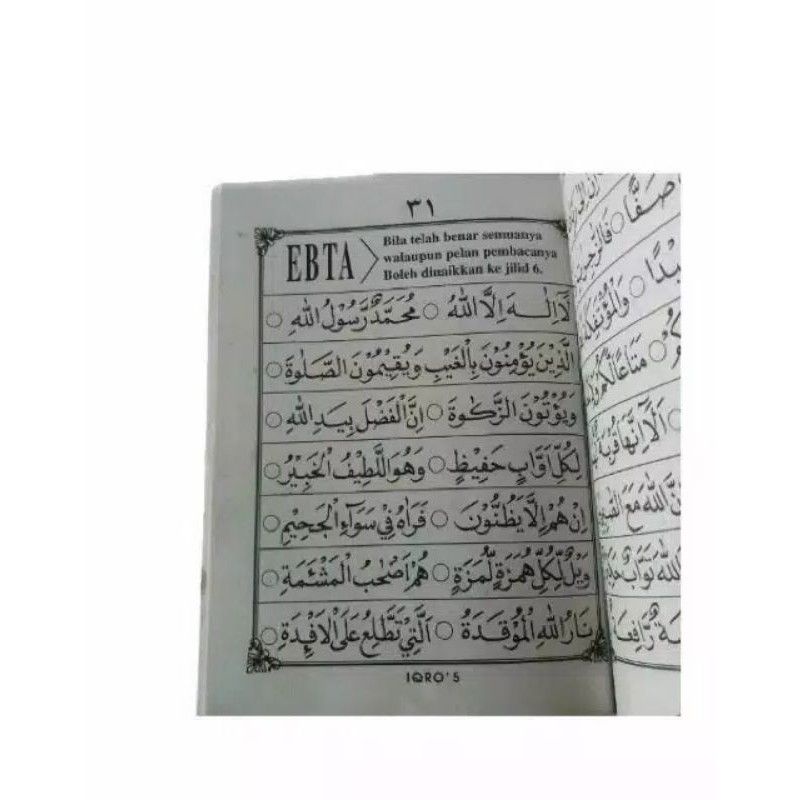 ٣١
EBTA
Bila telah benar semuanya
walaupun pelan pembacanya
Boleh dinaikkan ke jilid 6.
لَآاِلٰـهَ اِلَّا اللهُ ○ مُحَمَّدٌ رَّسُوْلُ اللهِ ○
الَّذِيْنَ يُؤْمِنُوْنَ بِالْغَيْبِ وَيُقِيْمُوْنَ الصَّلٰوةَ ○
وَيُؤْتُوْنَ الزَّكٰوةَ ○ اِنَّ الْفَضْلَ بِيَدِ اللهِ ○
لِكُلِّ اَوَّابٍ حَفِيْظٍ ○ وَهُوَ اللَّطِيْفُ الْخَبِيْرُ ○
اِنْ هُمْ اِلَّا يَظُنُّوْنَ ○ فَرَاٰهُ فِيْ سَوَآءِ الْجَحِيْمِ ○
وَيْلٌ لِّكُلِّ هُمَزَةٍ لُّمَزَةٍ ○ هُمْ اَصْحٰبُ الْمَشْئَمَةِ ○
نَارُ اللهِ الْمُوْقَدَةُ ○ الَّتِيْ تَطَّلِعُ عَلَى الْاَفْـِٕدَةِ ○
IQRO'5
صَفًّا
مَتَاعًا لَّكُمْ
اَلَآ اِنَّهَا قُرْبَةٌ
اللهَ مَعَ
اللهَ تَوَّابٌ